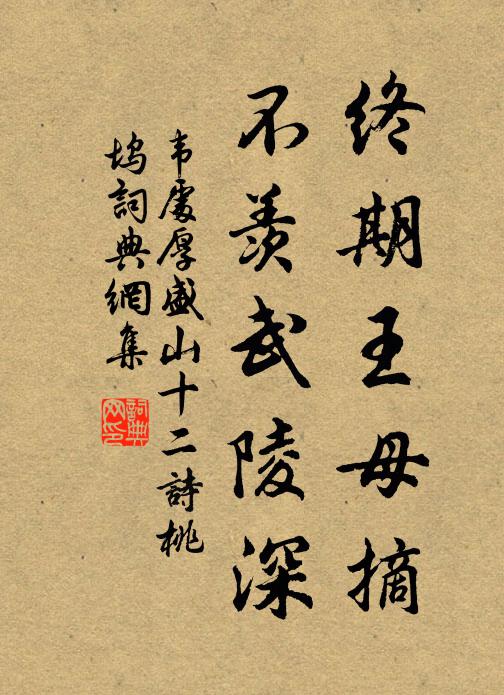 终期王母摘
不羨武陵深
韦處厚盛山十二詩桃
塢詞典網集
詞典
网印